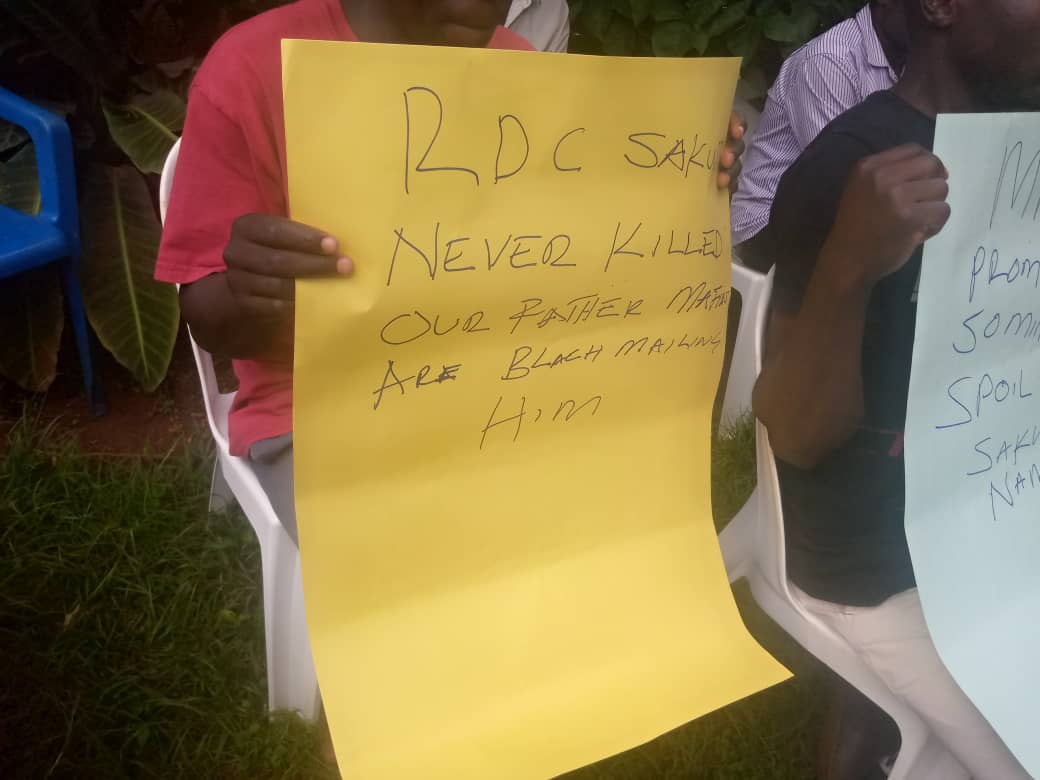 RDC SAKU
NEVER KILLED
OUR FATHER MAFIA
ARE BLACH MAILING
HIM
PROM
SOMI
SPOIL
SAKU
NAM